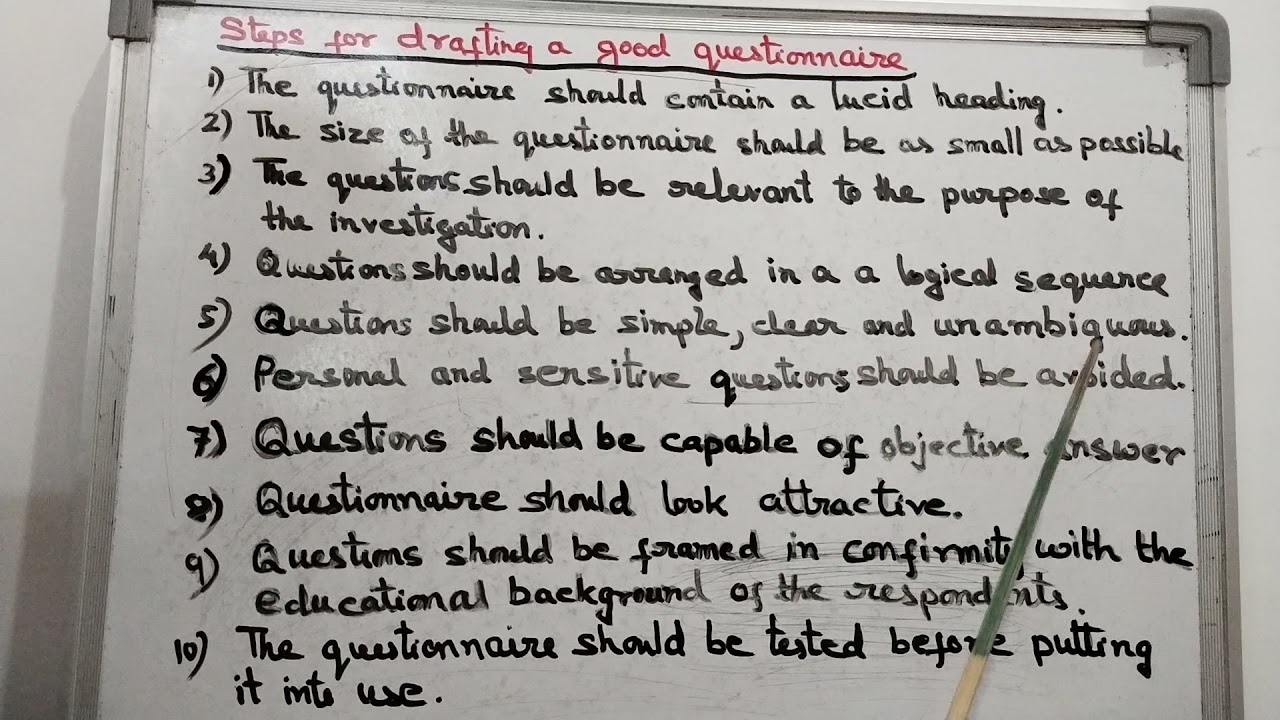 Steps for drafting a good questionnaire
1) The questionnaire should contain a lucid heading.
2) The size of the questionnaire should be as small as possible
3) The questions should be relevant to the purpose of
the investigation.
4) Questions should be arranged in a a logical sequence
5) Questions should be simple, clear and unambiguous.
6) Personal and sensitive questions should be avoided.
7) Questions should be capable of objective answer
8) Questionnaire should look attractive.
9) Questions should be framed in confirmity with the
educational background of the respondents.
10) The questionnaire should be tested before putting
it into use.